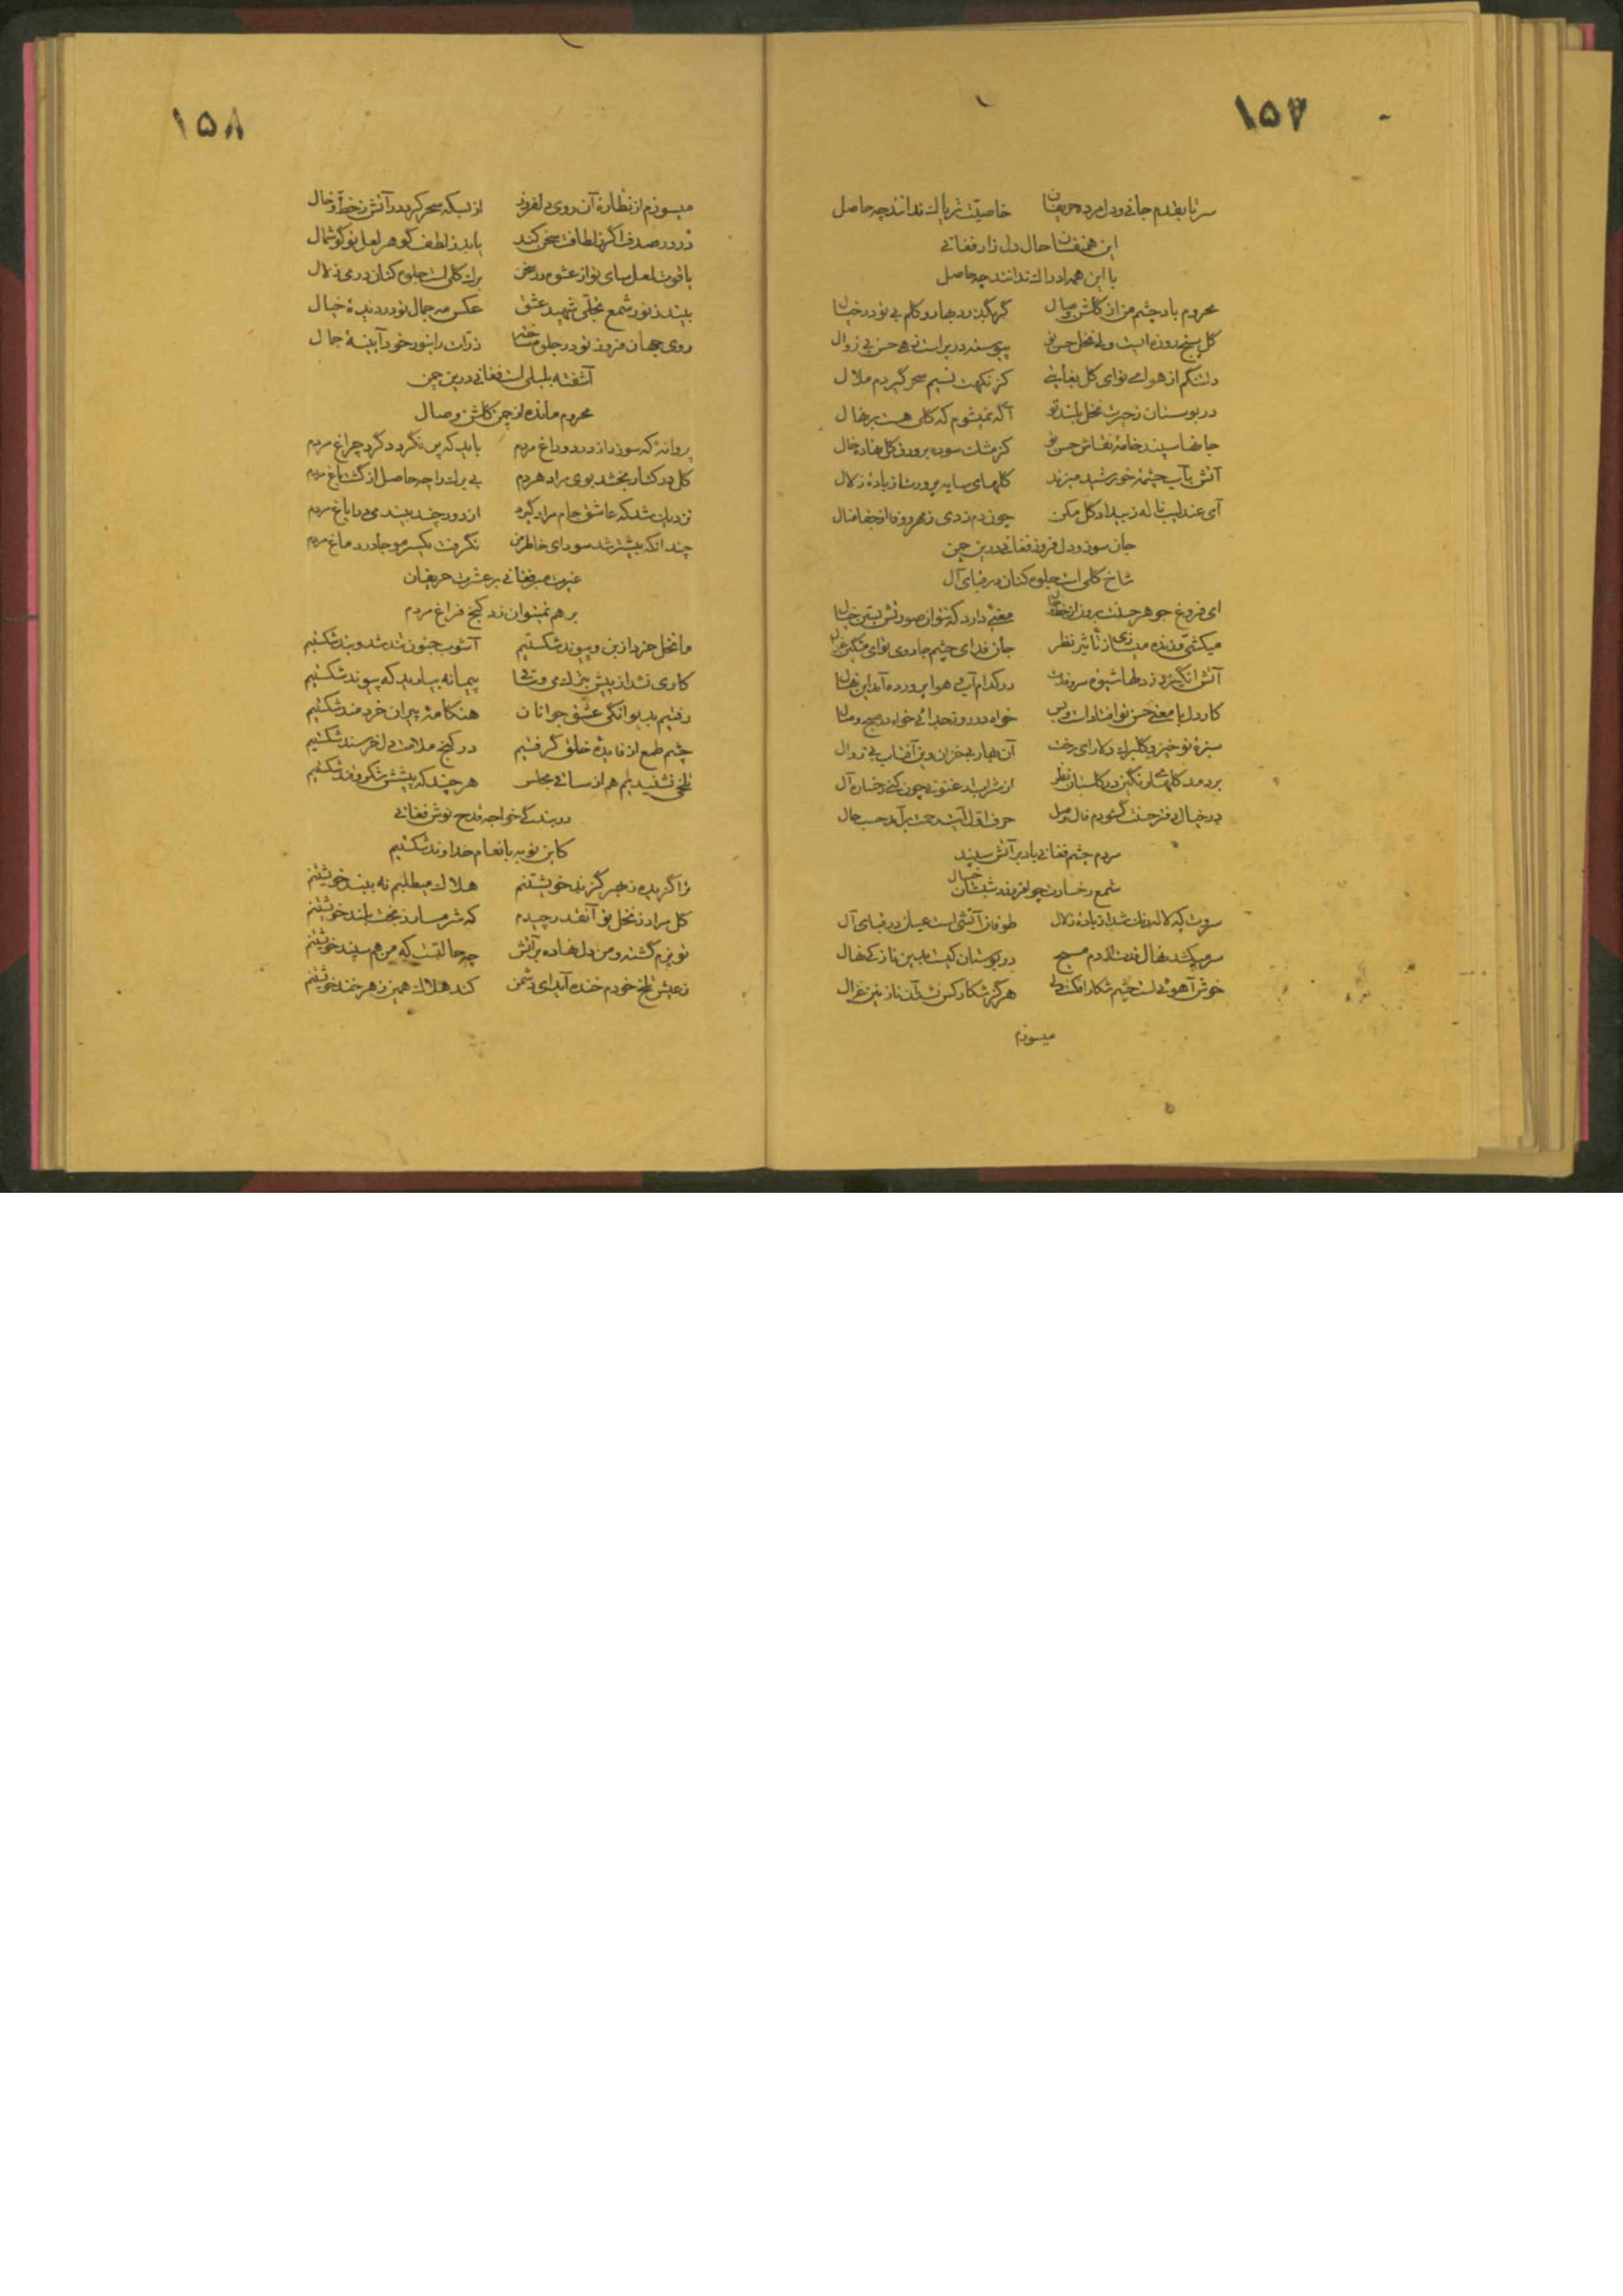 ۱۵۷
سر تا بقدم جانی و دل مرده حریفان خاصیت تریاک ندانند چه حاصل
این همنفسان حال دل زار فغانی
با این همه ادراک ندانند چه حاصل
محروم باد چشم من از گلشن وصال گر بگذرد بهار و گلم بی تو در خیال
گل پنج روزه است ولی نخل حسن تو پیوسته در براست زهی حسن بی زوال
دلتنگم از هوای تو ای گل بغایتی کز نکهت نسیم سحر گیردم ملال
در بوستان ز حیرت نخل بلند تو آگه نمیشوم که گلی هست بر نهال
جانها سپند خامه نقاش حسن تو کز مشک سوده بر ورق گل نهاده خال
آتش بآب چشمه خورشید میزند گلهای سایه پرورت از باده زلال
آی عندلیب ناله ز بیداد گل مکن چون دم زدی ز مهر وفا از جفا منال
جان سوز و دل فروز فغانی درین چمن
شاخ گلی است جلوه کنان در قبای آل
ای فروغ جوهر حسنت برون از خط و خال معنی دارد که نتوان صورتش بستن خیال
میکشی و زنده میسازی از تأثیر نظر جان فدای چشم جادوی تو ای مشکین غزال
آتش انگیزد ز دلها شیوه سرو قدت در کدام آب و هوا پرورده آمد این نهال
کار دل با معنی حسن تو افتاد است و بس خواه در روز جدائی خواه در صبح وصال
سبزه نوخیز و گلبرگ دلارای رخت آن بهار بی خزان وین آفتاب بی زوال
بردمد گلهای رنگین در گلستان نظر از شراب عشوه چون کنی رخساره آل
در خیال دفتر حسنت گشودم فال وصل حرف اول آیت رحمت برآمد حسب حال
مردم چشم فغانی باد بر آتش سپند
شمع رخسارت چو افروزد شبستان خیال
سروت که لاله زنان شد از باده زلال طوفان آتشی است عیان در قبای آل
سر میکشد نهال قدت از دم مسیح در بوستان کیست بدین نازکی نهال
خوش آهوئی است چشم شکار افکنت ولی هرگز شکار کس نشد آن نازنین غزال
میسوزم
۱۵۸
میسوزم از نظاره آن روی دلفروز از بسکه سحر کرد در آتش ز خط و خال
در در صدف اگر ز لطافت سخن کند یابد ز لطف گوهر لعل تو گوشمال
یاقوت لعل سای تو از عشوه در سخن برگ گلی است جلوه کنان در می زلال
بیند ز نور شمع تجلی شهید عشق عکس مه جمال تو در دیده خیال
روی جهان فروز تو در جلوه ساخته ذرات را بنور خود آیینه جمال
آشفته بلبلی است فغانی درین چمن
محروم مانده از چمن گلشن وصال
پروانه که سوزد از درد و داغ مردم باید که پس نگردد گرد چراغ مردم
گل در کنار بخشد بوی مراد هر دم بی برگ را چه حاصل از گشت باغ مردم
نزدیک شد که عاشق جام مراد گیرد از دور چند بیند می در ایاغ مردم
چندانکه بیشتر شد سودای خاطر من نگرفت یکسر مو جا در دماغ مردم
غیرت مبر فغانی بر عشرت حریفان
بر هم نمیتوان زد کنج فراغ مردم
ما نخل خرد از بن و پیوند شکستیم آشوب جنون تند شد و بند شکستیم
کاری نشد از پیش بنزک می و تقوی پیمانه بیارید که پیوند شکستیم
رفتیم بدیوانگی عشق جوانان هنگامه پیران خردمند شکستیم
چشم طمع از فایده خلق گرفتیم در کنج ملامت دل خرسند شکستیم
تلخی نشنیدیم هم از ساقی مجلس هر چند که پیشش شکر و قند شکستیم
در بندگی خواجه قدح نوش فغانی
کاین توبه بانعام خداوند شکستیم
ترا گزیده ز مهر گزند خویشتنم هلاک میطلبم نه بیند خویشتنم
گل مراد ز نخل تو آنقدر چیدم که شرمسار ز بخت بلند خویشتنم
تو بزم گشته و من دل نهاده بر آتش چه حالتست که من هم سپند خویشتنم
ز عیش تلخ خودم خنده آید ای دشمن کند هلاک همین زهر خند خویشتنم